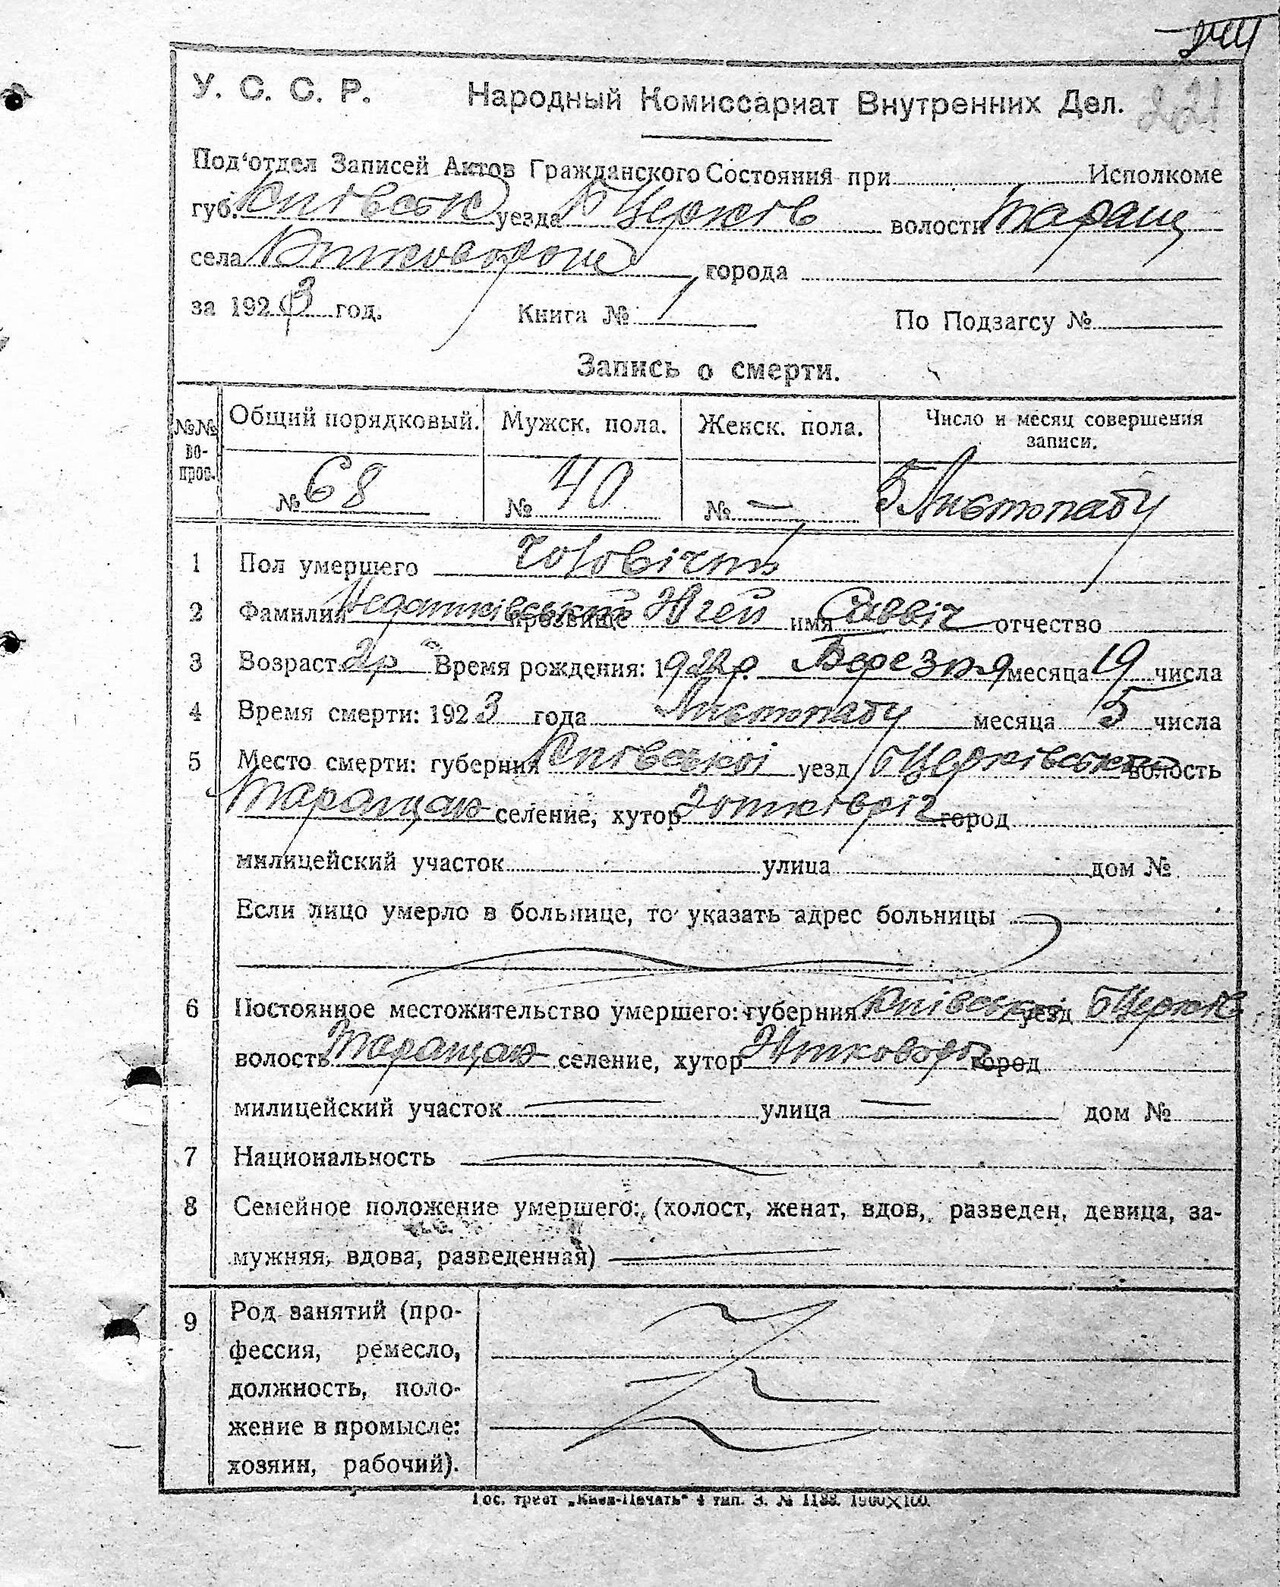 221
У. С. С. Р. Народный Комиссариат Внутренних Дел.
Под'отдел Записей Актов Гражданского Состояния при Исполкоме
губ. Київськ уезда БЦерків волости Таращ
села города
за 1923 год. Книга № По Подзагсу №
Запись о смерти.
№№ вопрос. Общий порядковый. Мужск. пола. Женск. пола. Число и месяц совершения записи.
№ 68 № 40 № — 5 Листопаду
1 Пол умершего чоловічий
2 Фамилия прозвище имя Саввіч отчество
3 Возраст 2р Время рождения: 1922р. Березня месяца 19 числа
4 Время смерти: 1923 года Листопаду месяца 5 числа
5 Место смерти: губерния Київської уезд БЦерківськ волость
Таращан селение, хутор город
милицейский участок улица дом №
Если лицо умерло в больнице, то указать адрес больницы
6 Постоянное местожительство умершего: губерния Київськ уезд БЦерків
волость Таращан селение, хутор город
милицейский участок — улица — дом №
7 Национальность —
8 Семейное положение умершего: (холост, женат, вдов, разведен, девица, за-
мужняя, вдова, разведенная) —
9 Род занятий (про-
фессия, ремесло,
должность, поло-
жение в промысле:
хозяин, рабочий).
Гос. трест „Киев-Печать" 4 тип. З. № 1188. 1900X100.